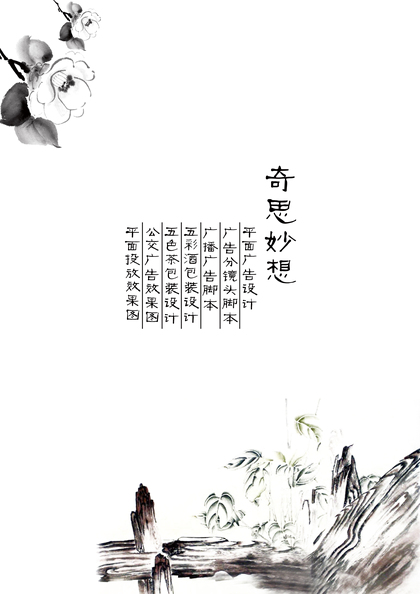 奇思妙想
平面广告设计
广告分镜头脚本
广播广告脚本
五彩酒包装设计
五色茶包装设计
公交广告效果图
平面投放效果图